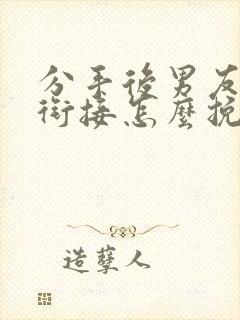 分手後男友
銜接怎麼挽
造孽人